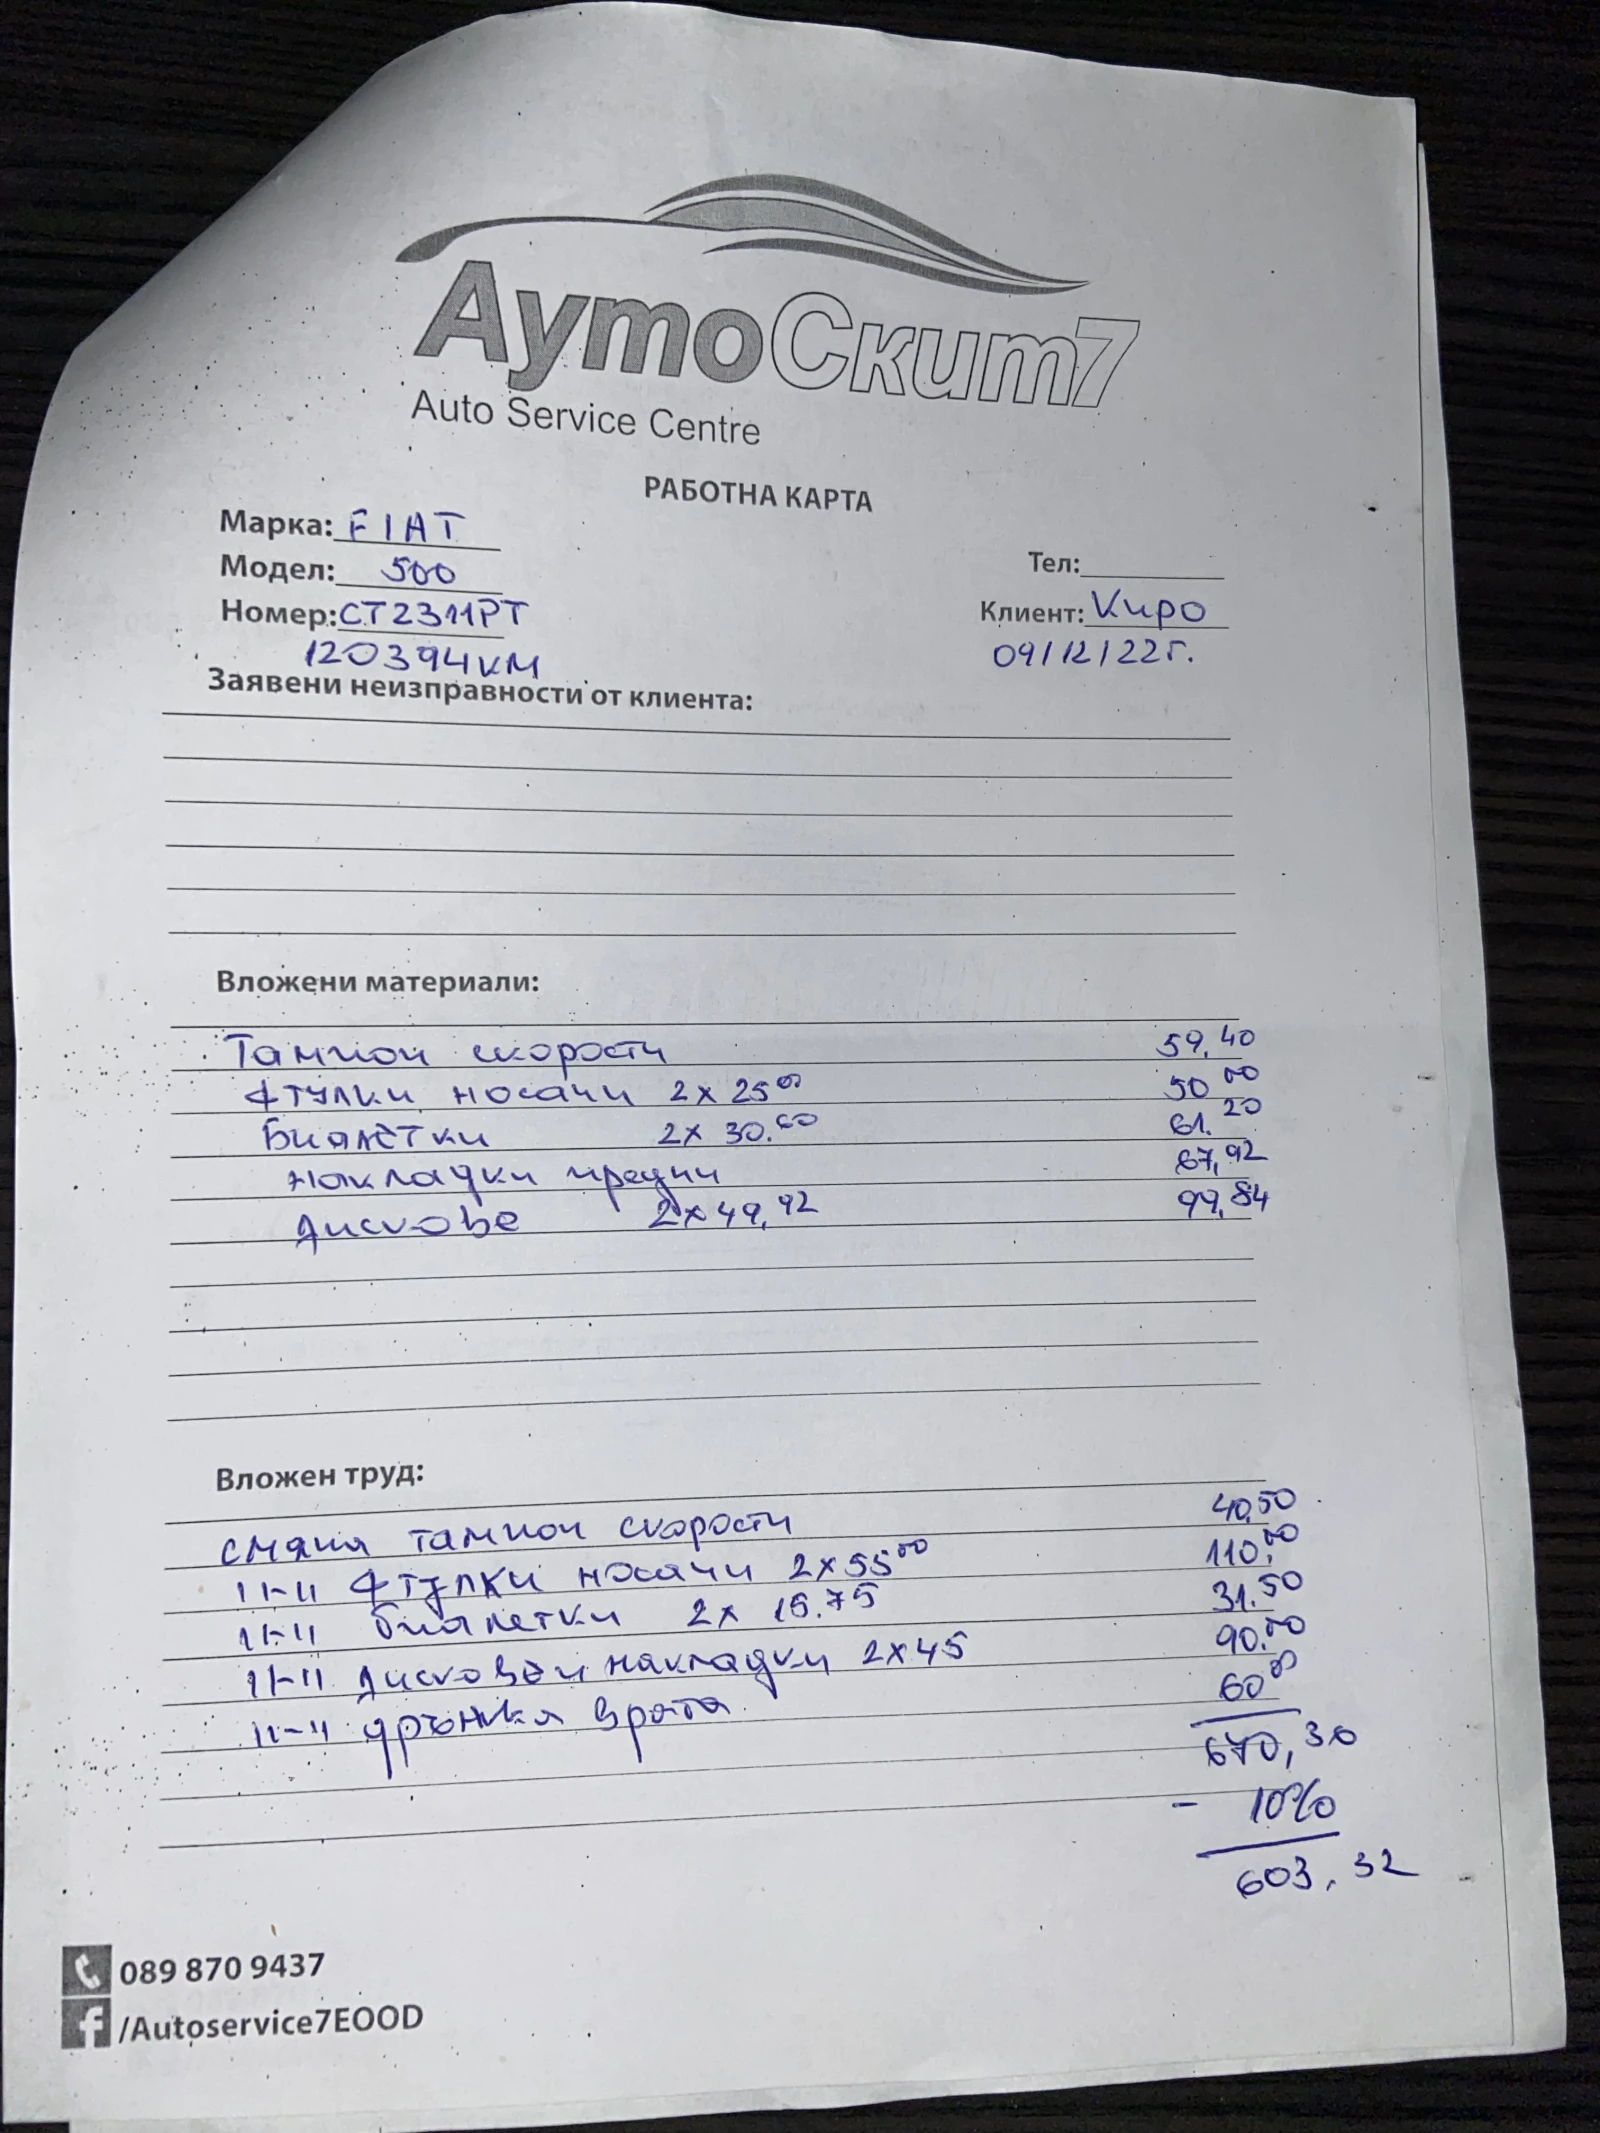 АутоСкит7
Auto Service Centre
РАБОТНА КАРТА
Марка: FIAT
Модел: 500
Тел:
Номер: СТ2311РТ
Клиент: Киро
120394км
09/12/22г.
Заявени неизправности от клиента:
Вложени материали:
Тампон скорости 59,40
втулки носачи 2 x 25 00 50 00
Биалетки 2x 30.60 61.20
накладки предни 67,92
дискове 2x49,92 99,84
Вложен труд:
смяна тампон скорости 40,50
11-11 втулки носачи 2x55 00 110,00
11-11 биалетки 2x 15.75 31.50
11-11 дискове и накладки 2x45 90.00
11-11 дръжка врата 60 00
670,36
- 10%
603,32
089 870 9437
/Autoservice7EOOD